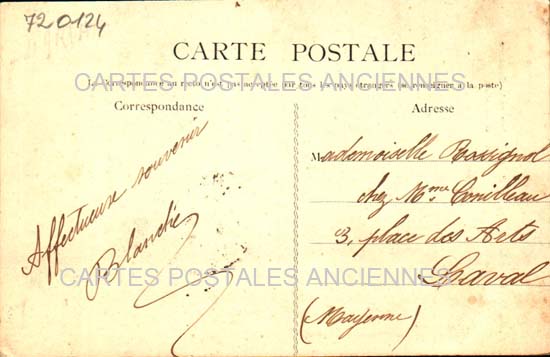 720124
CARTE POSTALE
La Correspondance au recto n'est pas acceptée par tous les pays étrangers (se renseigner à la poste)
CARTES POSTALES ANCIENNES
Correspondance
Affectueux souvenir
Blanche
Adresse
Mademoiselle Rossignol
chez Mme Conilleau
3, place des Arts
CARTES POSTALES ANCIENNES
Laval
(Mayenne)